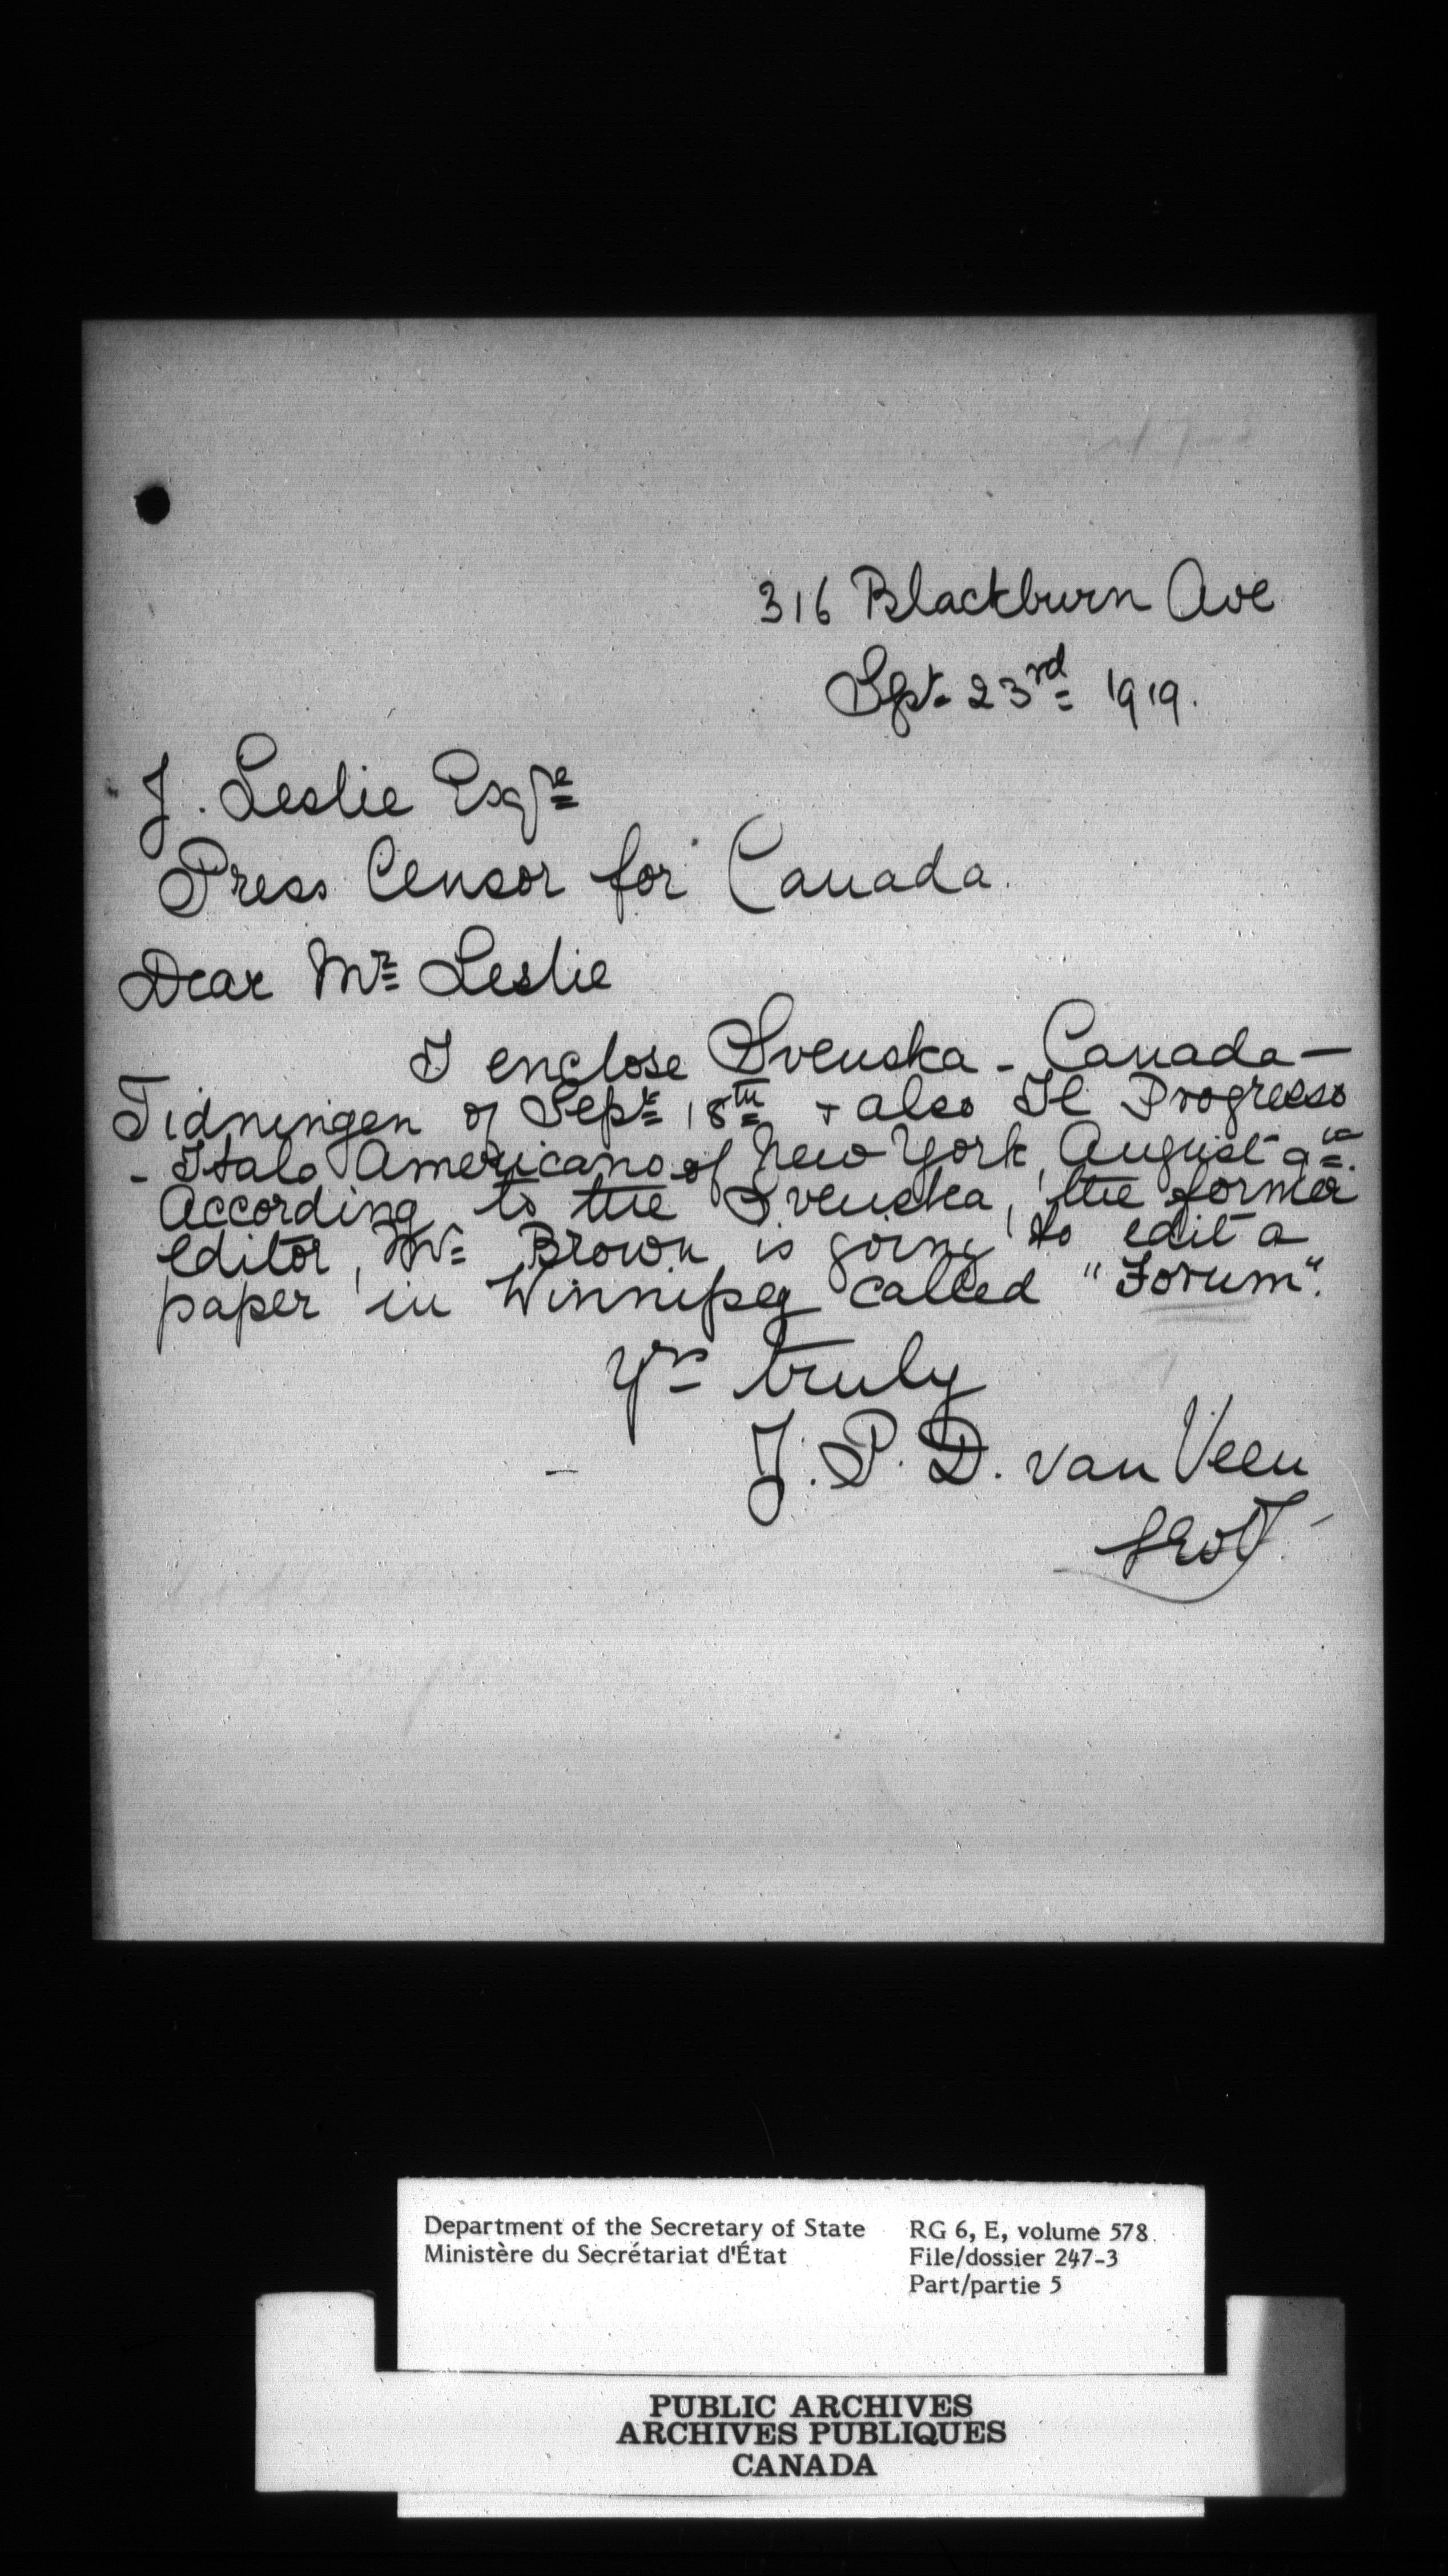 316 Blackburn Ave
Spt. 23rd 1919.
J. Leslie Esqre
Press Censor for Canada.
Dear Mr Leslie
I enclose Svenska - Canada -
Tidningen of Sept 18th + also Il Progresso
- Italo Americano of New York, August 9th.
According to the Svenska, the former
editor, Mr Brown is going to edit a
paper in Winnipeg called "Forum".
Yrs truly
J. P. D. van Veen
Department of the Secretary of State
Ministère du Secrétariat d'État
RG 6, E, volume 578
File/dossier 247-3
Part/partie 5
PUBLIC ARCHIVES
ARCHIVES PUBLIQUES
CANADA